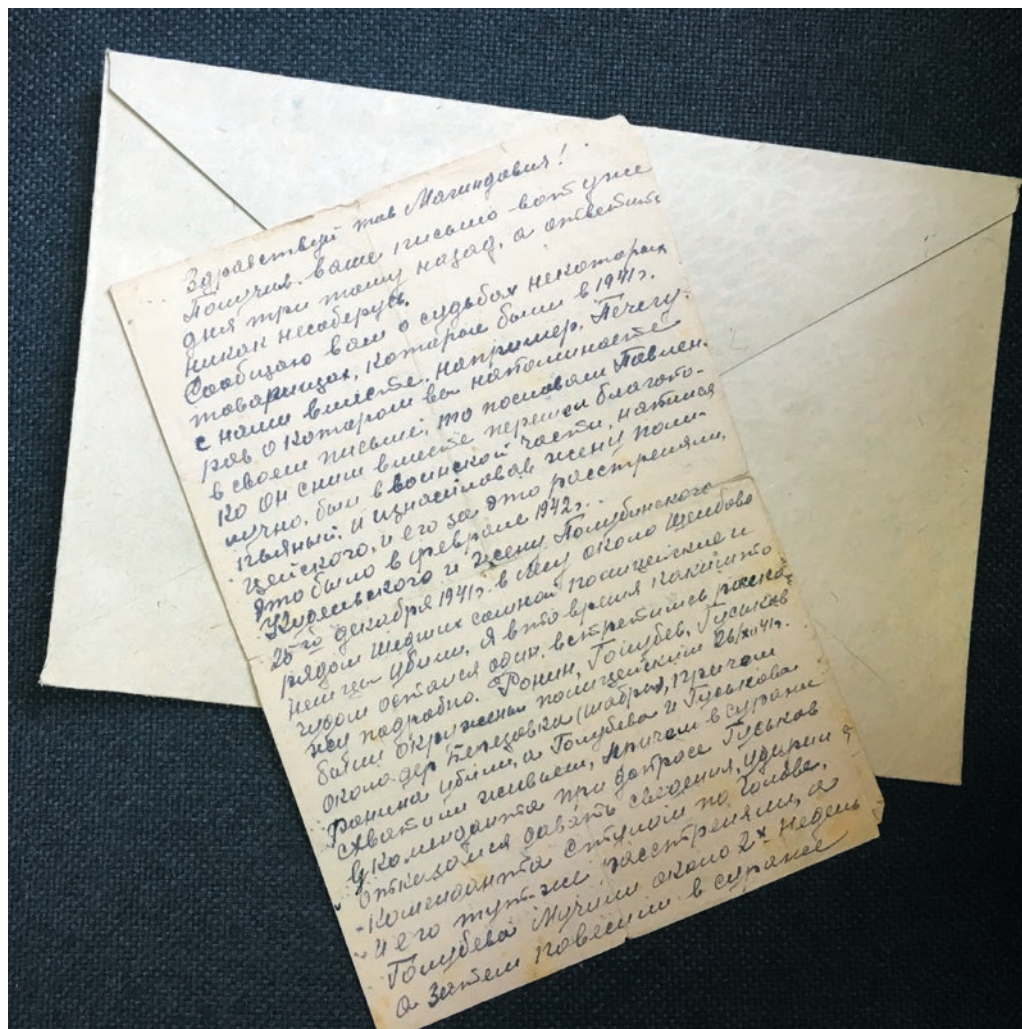 Здравствуй тов Магиндовия!
Получив ваше письмо вот уже
дня три тому назад, а ответить
никак несоберусь.
Сообщаю вам о судьбах некоторых
товарищах, которои были в 1941г.
с нами вместе, например, Печегу-
ров о котором вы напоминаете
в своем письме, то пословам Павлен-
ко он сним вместе перешел благопо-
лучно, был в воинской части, напился
пьяный, и изнасиловав жену поли-
цейского, и его за это расстреляли,
это было в феврале 1942г.
и жену Голубинского
25го декабря 1941г. в лесу около
рядом шедших со мной полицейские и
немцы убили, я вто время какимто
чудом остался один, встретимсь раска-
жу подробно. Ронин, Голубев, Гуськов
были окружены полицейским 26/XII 41г.
около дер Березовка (шабры), причем
Ронина убили, а Голубева и Гуськова
схватили живьем, причем в суране
у коменданта при допросе Гуськов
отказался давать сведения, ударил
коменданта стулом по голове,
и его тут же расстреляли, а
Голубева мучили около 2х недель
а затем повесили в суране